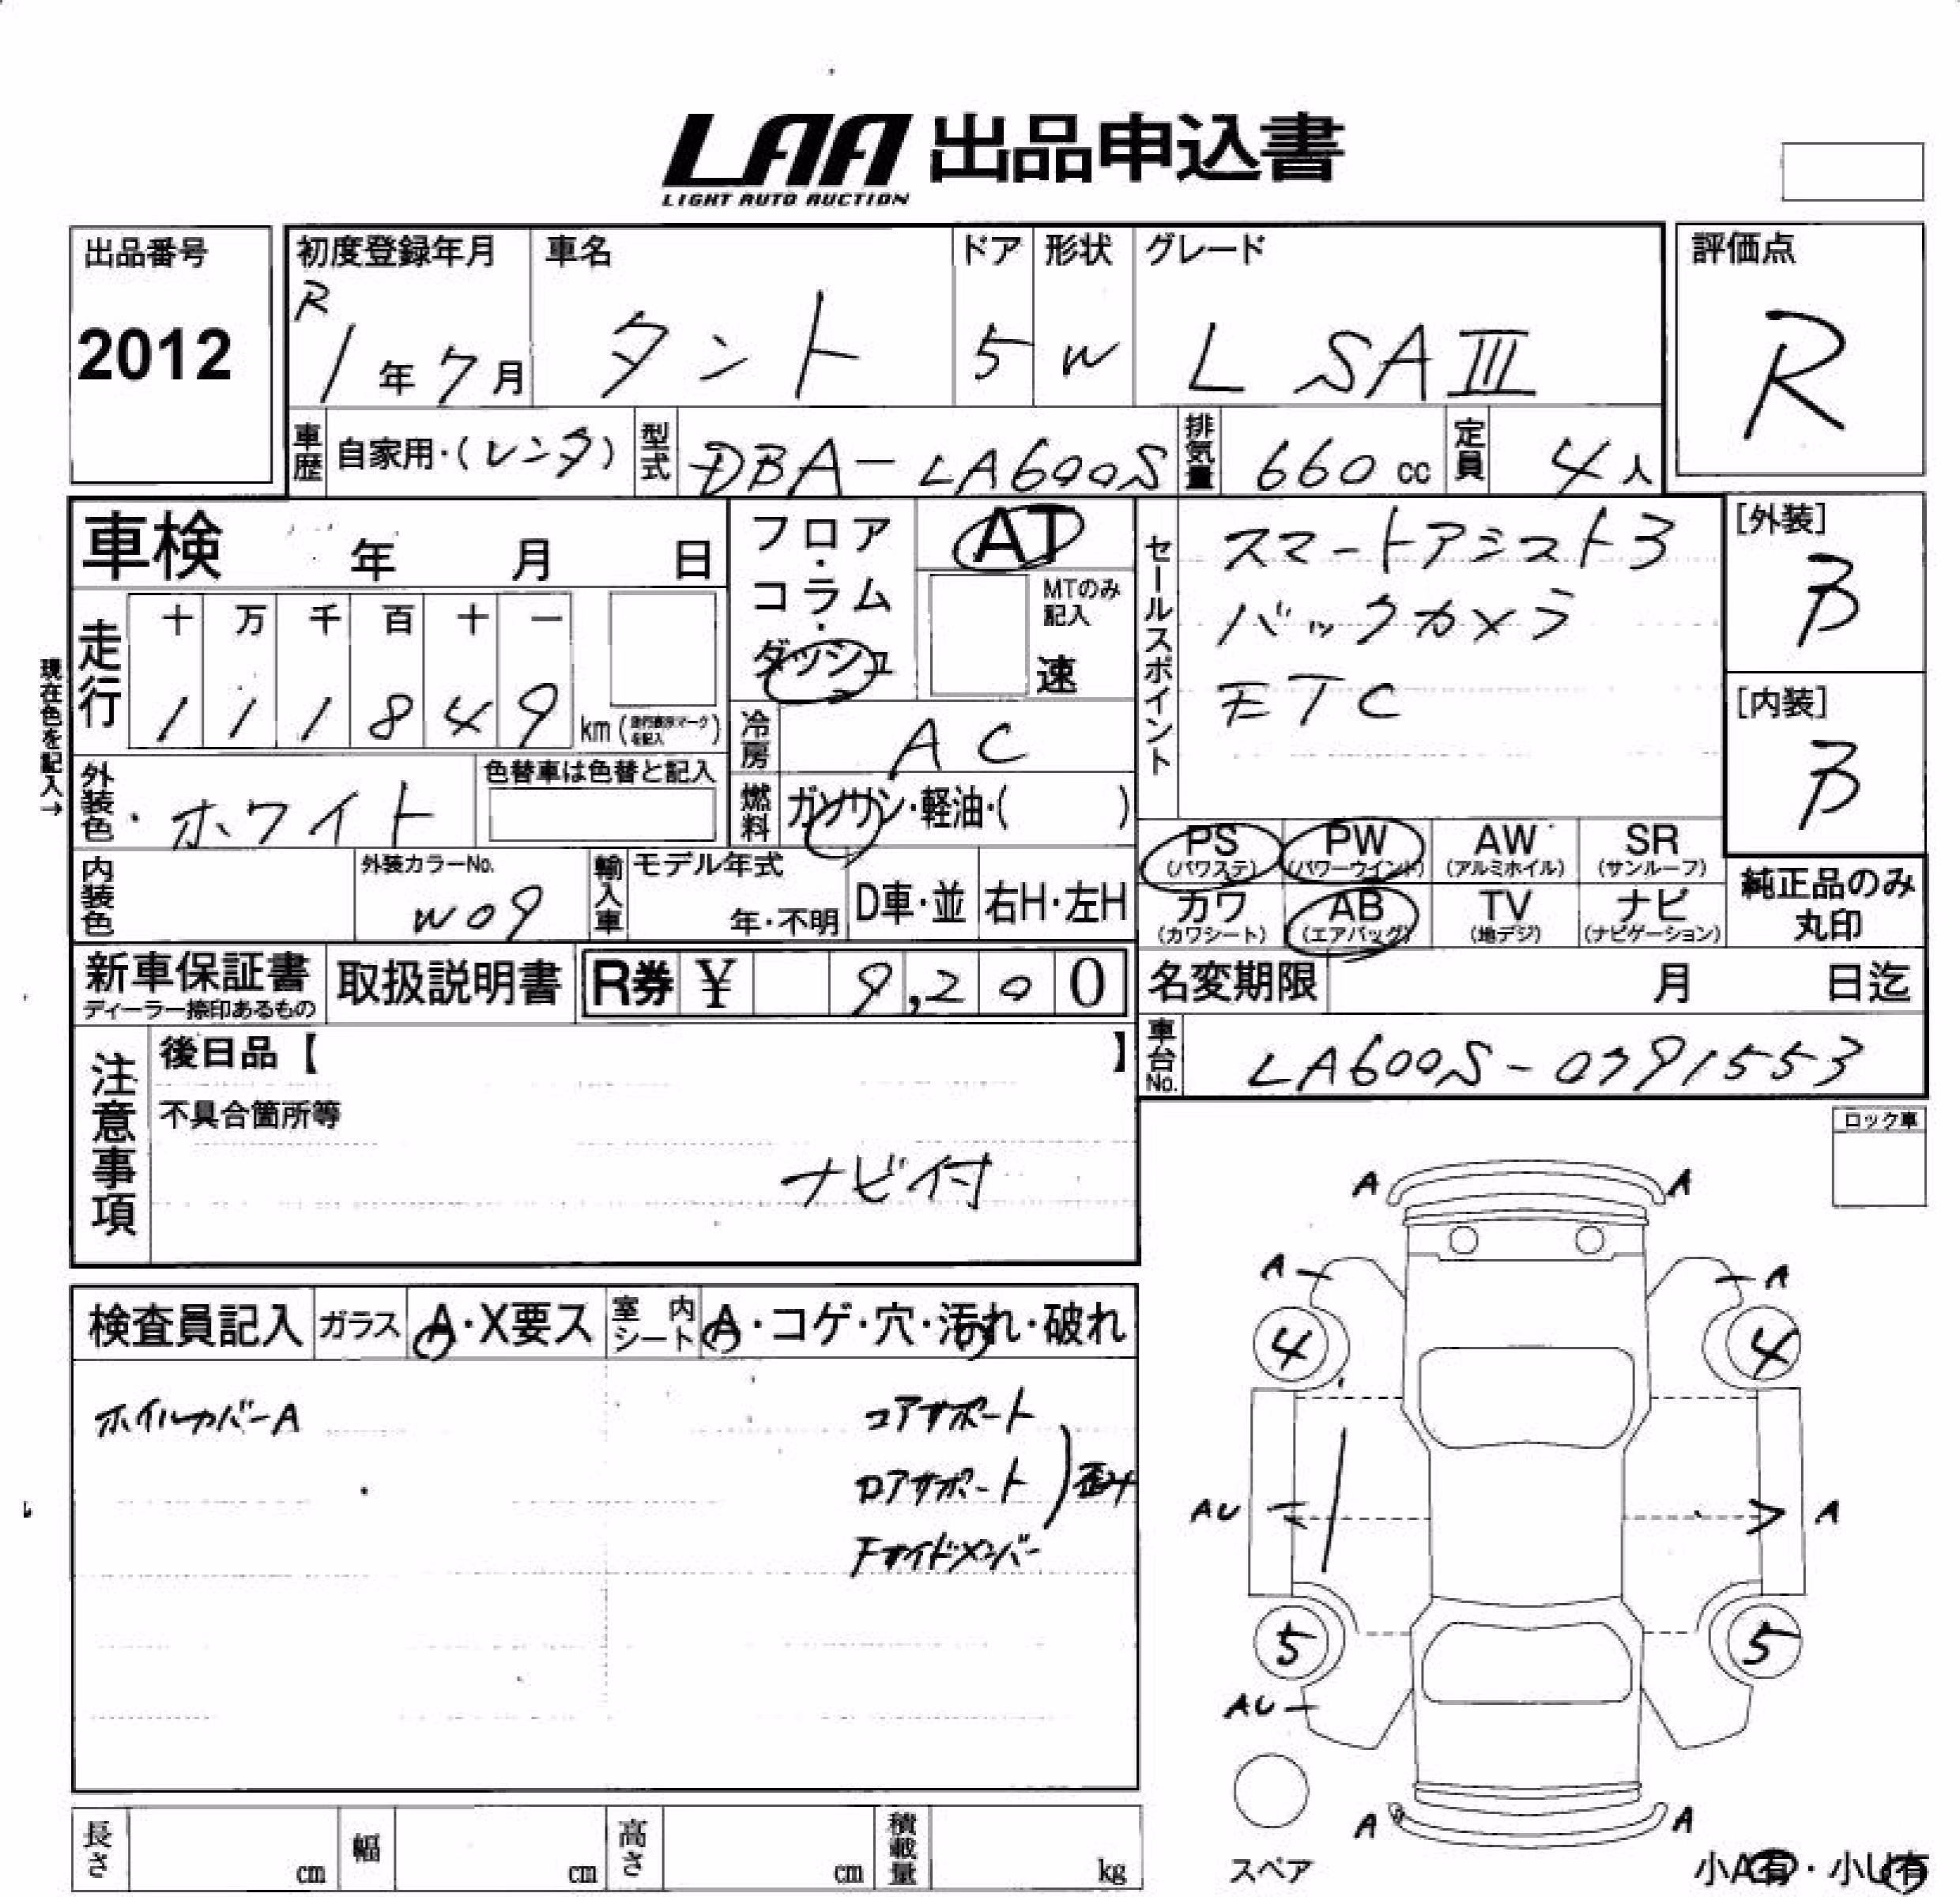 LAA 出品申込書
LIGHT AUTO AUCTION
出品番号
2012
初度登録年月
R
1年7月
車名
タント
ドア
5
形状
W
グレード
L SAⅢ
評価点
R
車歴
自家用・(レンタ)
型式
DBA-LA600S
排気量
660 cc
定員
4人
車検 年 月 日
フロア・コラム・ダッシュ
AT
MTのみ記入
速
セールスポイント
スマートアシスト3
バックカメラ
ETC
[外装]
B
[内装]
B
現在色を記入→
走行
十 万 千 百 十 一
1 1 1 8 4 9
km (走行表示マークを記入)
冷房
AC
外装色・ホワイト
色替車は色替と記入
燃料
ガソリン・軽油・( )
PS
(パワステ)
PW
(パワーウインド)
AW
(アルミホイル)
SR
(サンルーフ)
内装色
外装カラーNo.
W09
輸入車
モデル年式
年・不明
D車・並
右H・左H
カワ
(カワシート)
AB
(エアバッグ)
TV
(地デジ)
ナビ
(ナビゲーション)
純正品のみ
丸印
新車保証書
ディーラー捺印あるもの
取扱説明書
R券 ¥ 9,200
名変期限 月 日迄
車台No.
LA600S-0791553
注意事項
後日品【 】
不具合箇所等
ナビ付
ロック車
検査員記入
ガラス
A・X要ス
室内シート
A・コゲ・穴・汚れ・破れ
ホイルカバーA
コアサポート
ロアサポート
歪み
Fサイドメンバー
A A
A A
4 4
AU A
5 5
AU
A A
スペア
小A有・小U有
長さ cm
幅 cm
高さ cm
積載量 kg